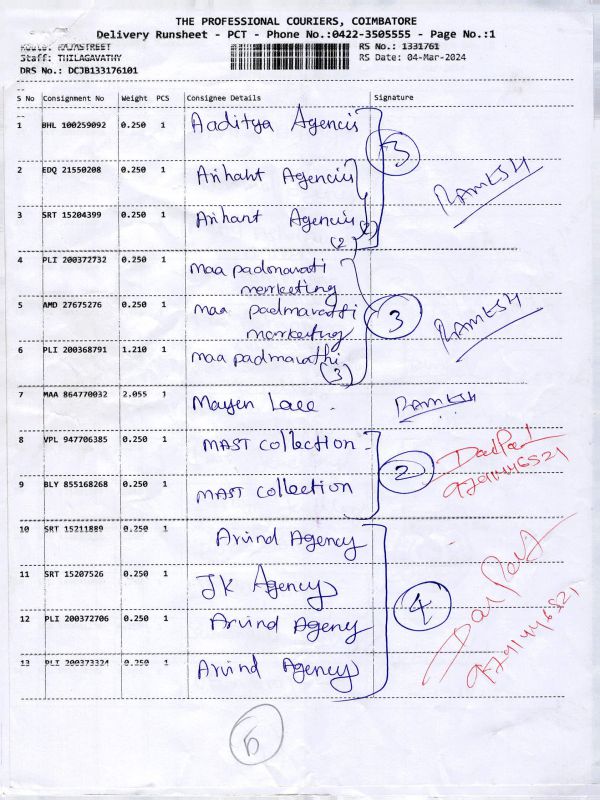 THE PROFESSIONAL COURIERS, COIMBATORE
Delivery Runsheet - PCT - Phone No.:0422-3505555 - Page No.:1
Route: RAJASTREET
RS No.: 1331761
Staff: THILAGAVATHY
RS Date: 04-Mar-2024
DRS No.: DCJB133176101
S No Consignment No Weight PCS Consignee Details Signature
1 BHL 100259092 0.250 1 Aaditya Agencis
3
2 EDQ 21550208 0.250 1 Arihant Agencius
RAMESH
3 SRT 15204399 0.250 1 Arihant Agencius
(2)
4 PLI 200372732 0.250 1 maa padmavati
marketing
5 AMD 27675276 0.250 1 maa padmavathi
marketing
3 RAMESH
6 PLI 200368791 1.210 1 maa padmavathi
(3)
7 MAA 864770032 2.055 1 Mayen Lace. RAMESH
8 VPL 947706385 0.250 1 MAST collection
2
9791446521
9 BLY 855168268 0.250 1 MAST collection
10 SRT 15211889 0.250 1 Arvind Agency
11 SRT 15207526 0.250 1 JK Agency
4
9791446521
12 PLI 200372706 0.250 1 Arvind Ageny
13 PLI 200373324 0.250 1 Arvind Agency